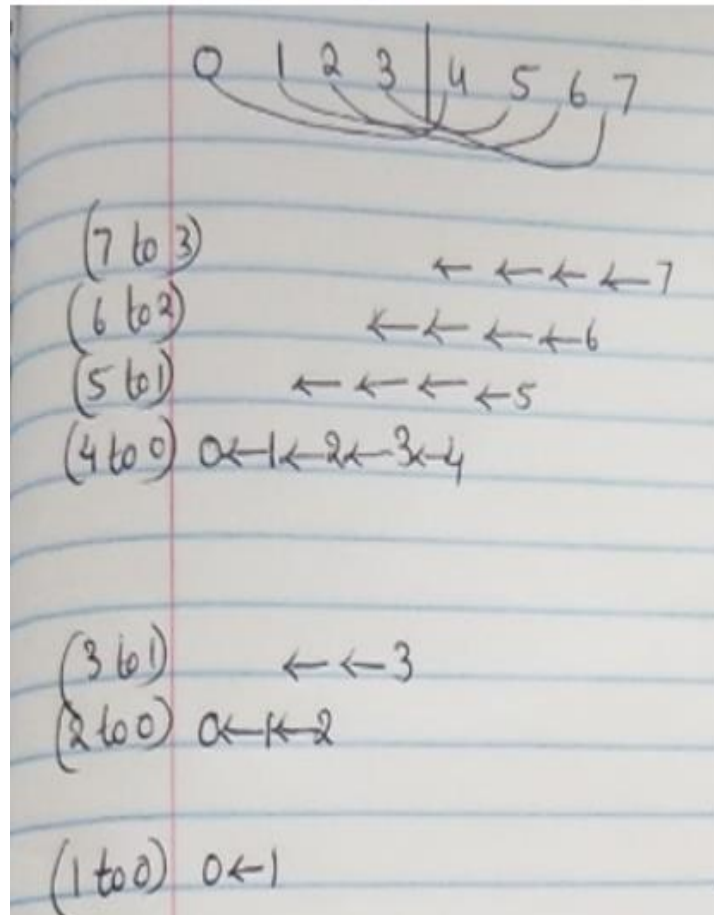 0 1 2 3 | 4 5 6 7
(7 to 3) ← ← ← ← 7
(6 to 2) ← ← ← ← 6
(5 to 1) ← ← ← ← 5
(4 to 0) 0 ← 1 ← 2 ← 3 ← 4
(3 to 1) ← ← 3
(2 to 0) 0 ← 1 ← 2
(1 to 0) 0 ← 1